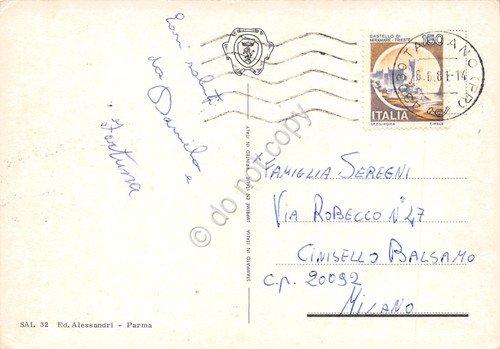 Cari saluti
da Daniela e
Fortuna
CASTELLO DI
MIRAMARE - TRIESTE
ITALIA
BORGOTARO (PR)
.6.81-14
do not copy
STAMPATO IN ITALIA IMPRIMÉ EN ITALIE PRINTED IN ITALY
FAMIGLIA SEREGNI
VIA ROBECCO N° 47
CINISELLO BALSAMO
C.P. 20092
MILANO
SAL 32 Ed. Alessandri - Parma